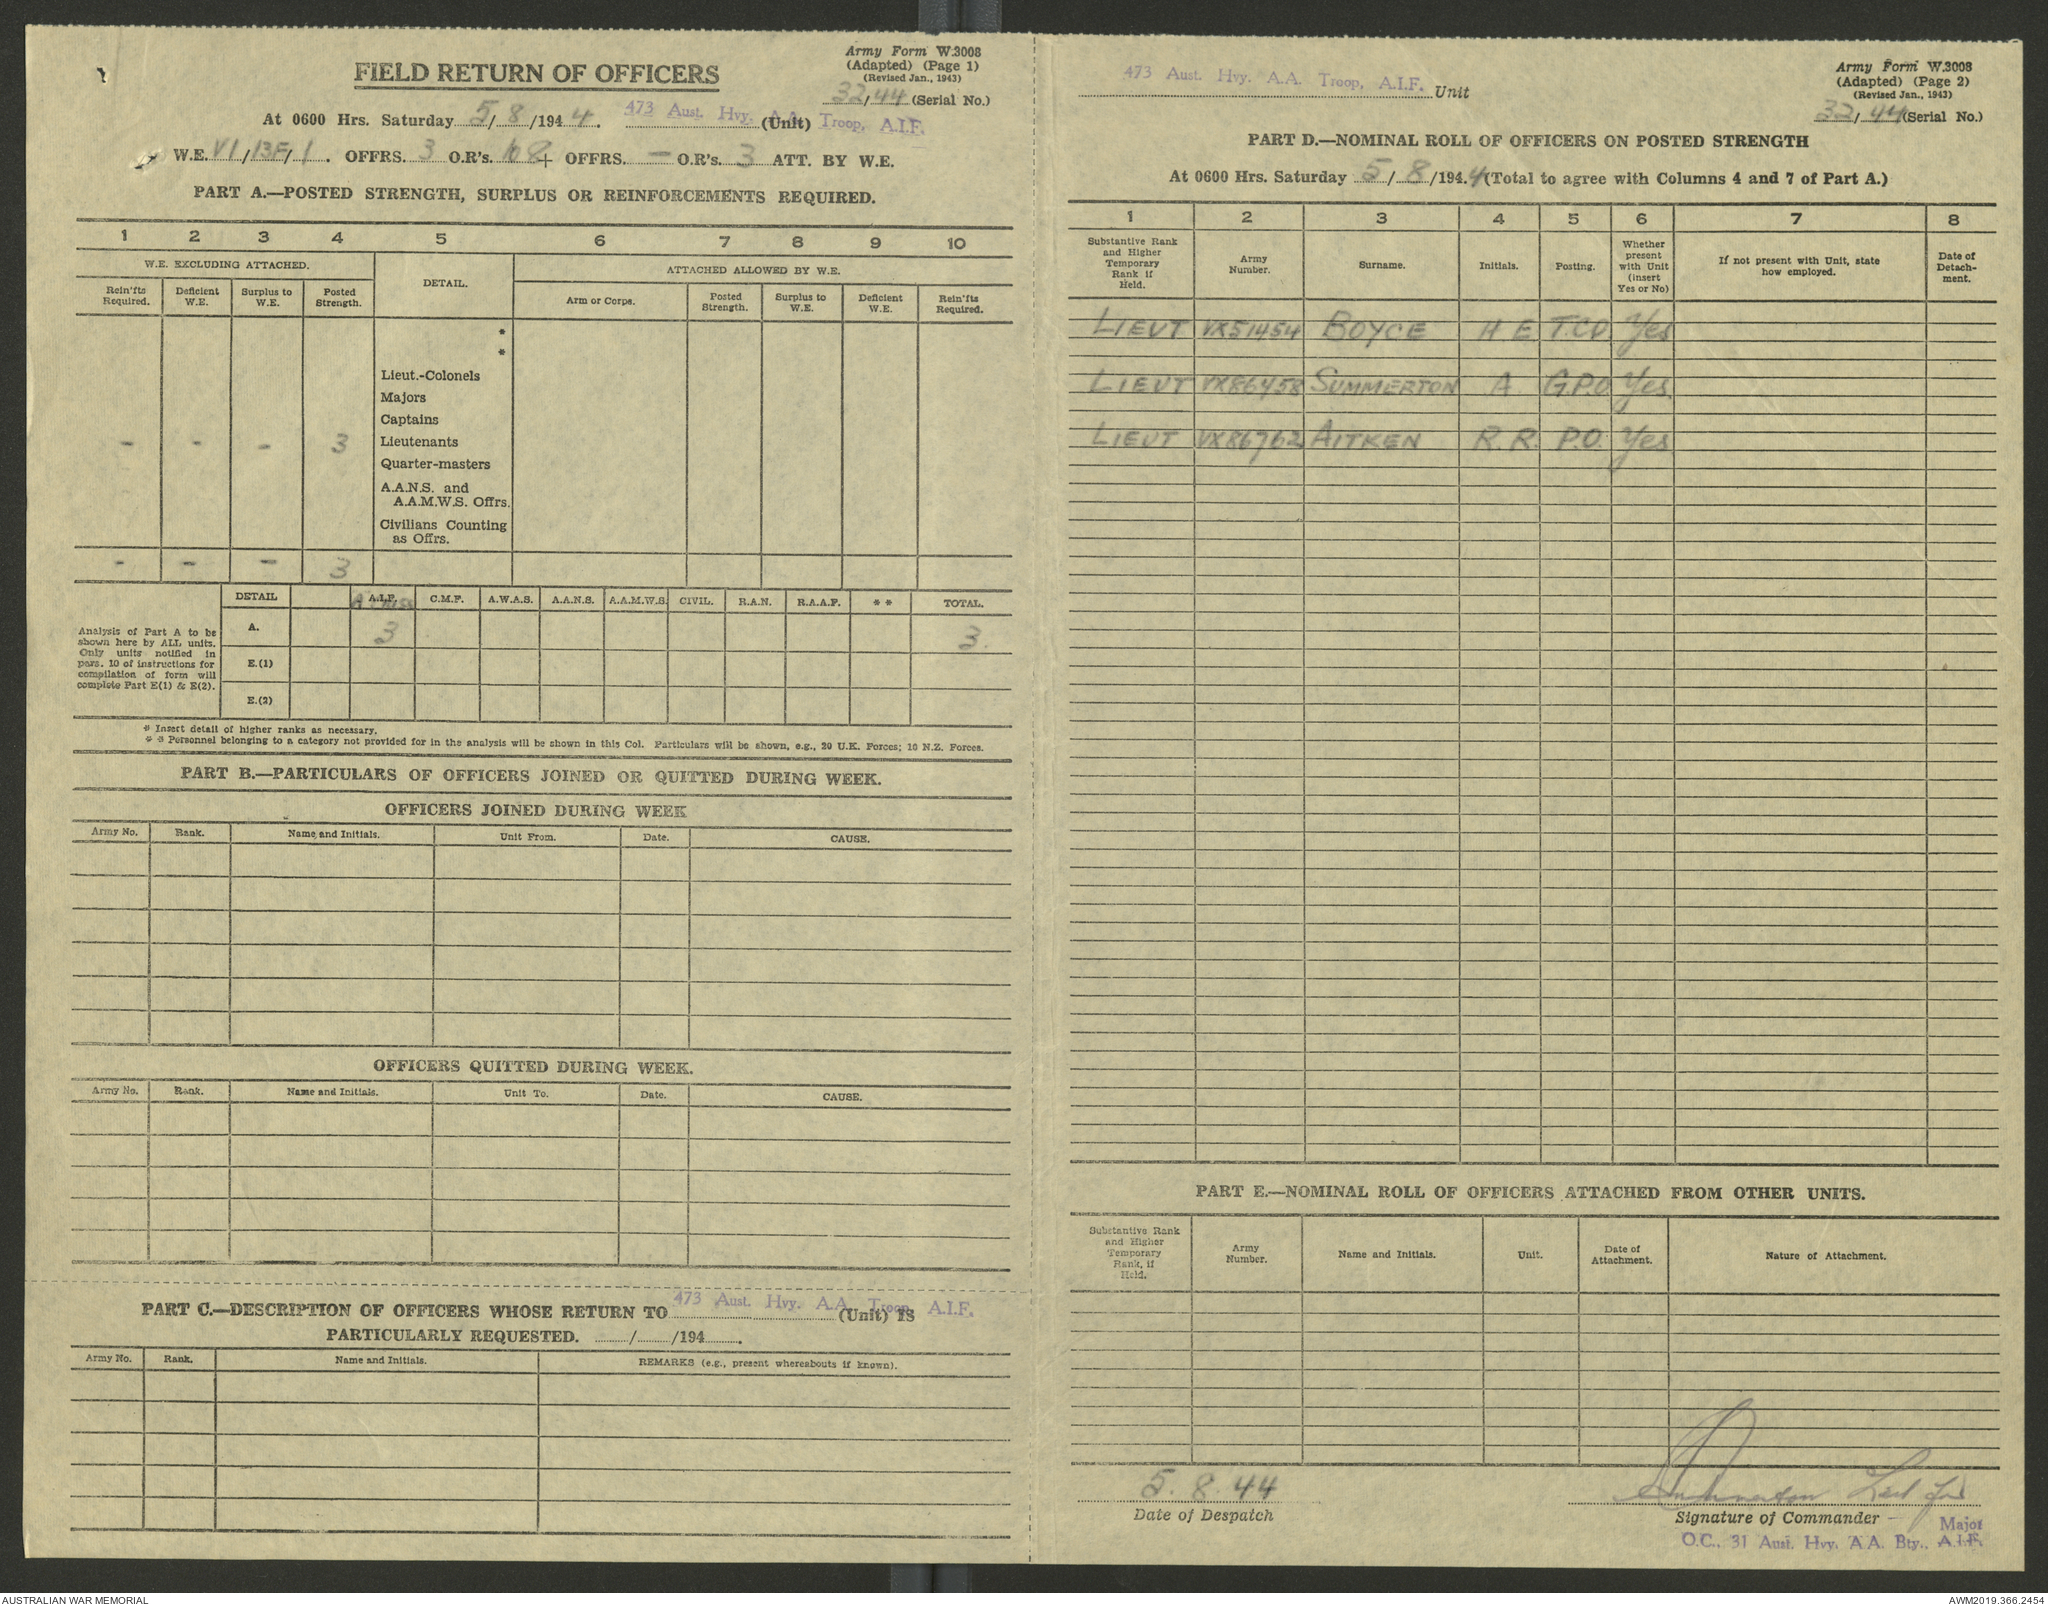 FIELD RETURN OF OFFICERS
Army Form W.3008
(Adapted) (Page 1)
(Revised Jan., 1943)
32/44 (Serial No.)
At 0600 Hrs. Saturday 5/8/1944. 473 Aust. Hvy. A.A. Troop, A.I.F. (Unit)
W.E. VI/13F/1. OFFRS. 3 O.R's. 108 + OFFRS. — O.R's. 3 ATT. BY W.E.
PART A.—POSTED STRENGTH, SURPLUS OR REINFORCEMENTS REQUIRED.
1 2 3 4 5 6 7 8 9 10
W.E. EXCLUDING ATTACHED. DETAIL. ATTACHED ALLOWED BY W.E.
Rein'fts Required. Deficient W.E. Surplus to W.E. Posted Strength. Arm or Corps. Posted Strength. Surplus to W.E. Deficient W.E. Rein'fts Required.
*
*
Lieut.-Colonels
Majors
Captains
- - - 3 Lieutenants
Quarter-masters
A.A.N.S. and
A.A.M.W.S. Offrs.
Civilians Counting
as Offrs.
- - - 3
DETAIL A.I.F. C.M.F. A.W.A.S. A.A.N.S. A.A.M.W.S. CIVIL. R.A.N. R.A.A.F. * * TOTAL.
Analysis of Part A to be shown here by ALL units. Only units notified in para. 10 of instructions for compilation of form will complete Part E(1) & E(2).
A. 3 3.
E.(1)
E.(2)
* Insert detail of higher ranks as necessary.
* * Personnel belonging to a category not provided for in the analysis will be shown in this Col. Particulars will be shown, e.g., 20 U.K. Forces; 16 N.Z. Forces.
PART B.—PARTICULARS OF OFFICERS JOINED OR QUITTED DURING WEEK.
OFFICERS JOINED DURING WEEK
Army No. Rank. Name and Initials. Unit From. Date. CAUSE.
OFFICERS QUITTED DURING WEEK.
Army No. Rank. Name and Initials. Unit To. Date. CAUSE.
PART C.—DESCRIPTION OF OFFICERS WHOSE RETURN TO 473 Aust. Hvy. A.A. Troop, A.I.F. (Unit) IS
PARTICULARLY REQUESTED. ....../....../194......
Army No. Rank. Name and Initials. REMARKS (e.g., present whereabouts if known).
473 Aust. Hvy. A.A. Troop, A.I.F. Unit
Army Form W.3008
(Adapted) (Page 2)
(Revised Jan., 1943)
32/44 (Serial No.)
PART D.—NOMINAL ROLL OF OFFICERS ON POSTED STRENGTH
At 0600 Hrs. Saturday 5/8/1944 (Total to agree with Columns 4 and 7 of Part A.)
1 2 3 4 5 6 7 8
Substantive Rank and Higher Temporary Rank if Held. Army Number. Surname. Initials. Posting. Whether present with Unit (insert Yes or No) If not present with Unit, state how employed. Date of Detachment.
LIEUT VX51454 BOYCE H E T.C.O Yes
LIEUT VX86458 SUMMERTON A. G.P.O. Yes
LIEUT VX86762 AITKEN R. R. P.O. Yes
PART E.—NOMINAL ROLL OF OFFICERS ATTACHED FROM OTHER UNITS.
Substantive Rank and Higher Temporary Rank, if Held. Army Number. Name and Initials. Unit. Date of Attachment. Nature of Attachment.
5. 8. 44
Date of Despatch
Summerton Lieut for
Signature of Commander
Major
O.C., 31 Aust. Hvy. A A. Bty., A.I.F.
AUSTRALIAN WAR MEMORIAL
AWM2019.366.2454